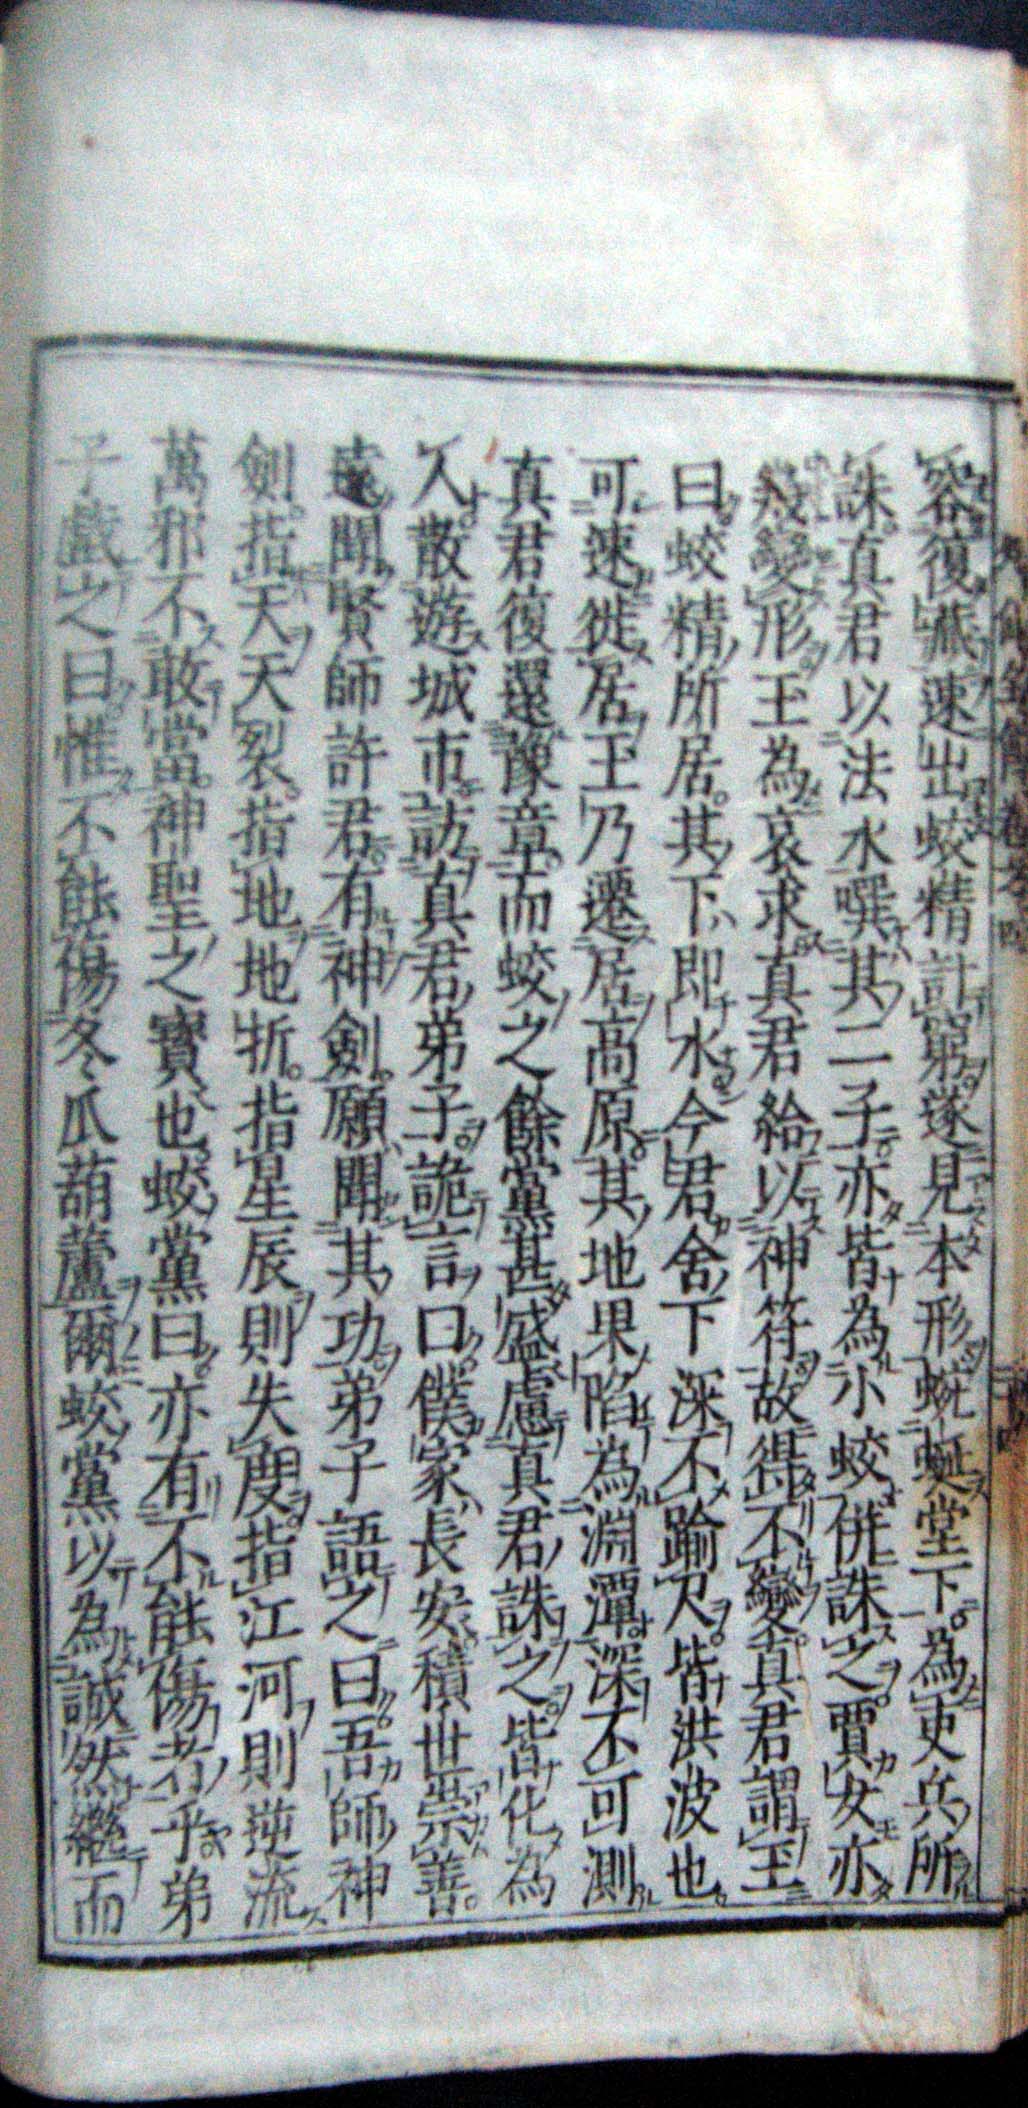 容復藏速出蛟精計窮遂見本形蜿蜒堂下為吏兵所
誅真君以法水噀其二子亦皆為小蛟併誅之賈女亦
幾變形玉為哀求真君給以神符故得不變真君謂玉
曰蛟精所居其下即水今君舍下深不踰尺皆洪波也
可速徙居玉乃遷居高原其地果陷為淵潭深不可測
真君復還豫章而蛟之餘黨甚盛慮真君誅之皆化為
人散遊城市訪真君弟子詭言曰僕家長安積世崇善
遠聞賢師許君有神劍願聞其功弟子語之曰吾師神
劍指天天裂指地地折指星辰則失度指江河則逆流
萬邪不敢當神聖之寶也蛟黨曰亦有不能傷者乎弟
子戲之曰惟不能傷冬瓜葫蘆爾蛟黨以為誠然繼而